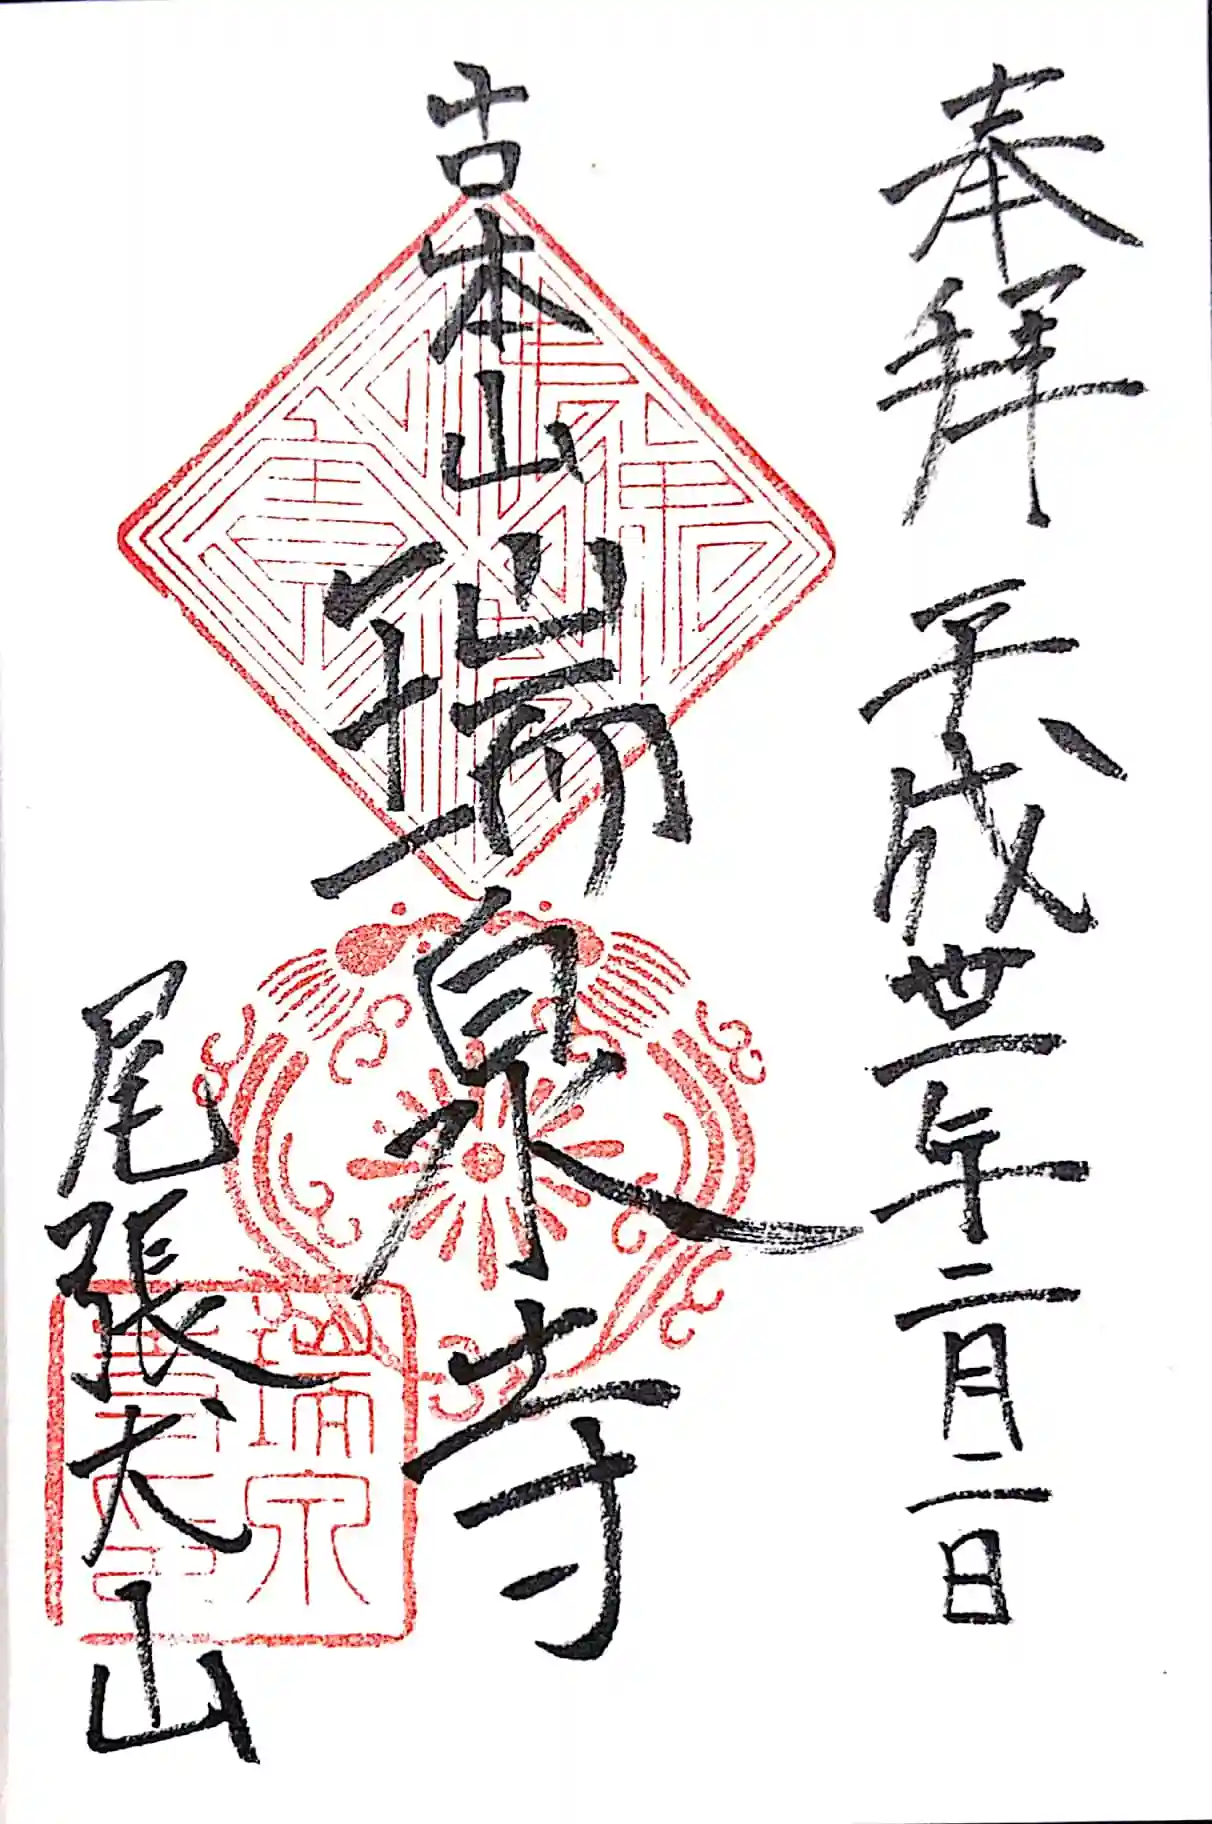 奉拝 平成丗一年二月二日
古本山 瑞泉寺
尾張犬山
瑞泉